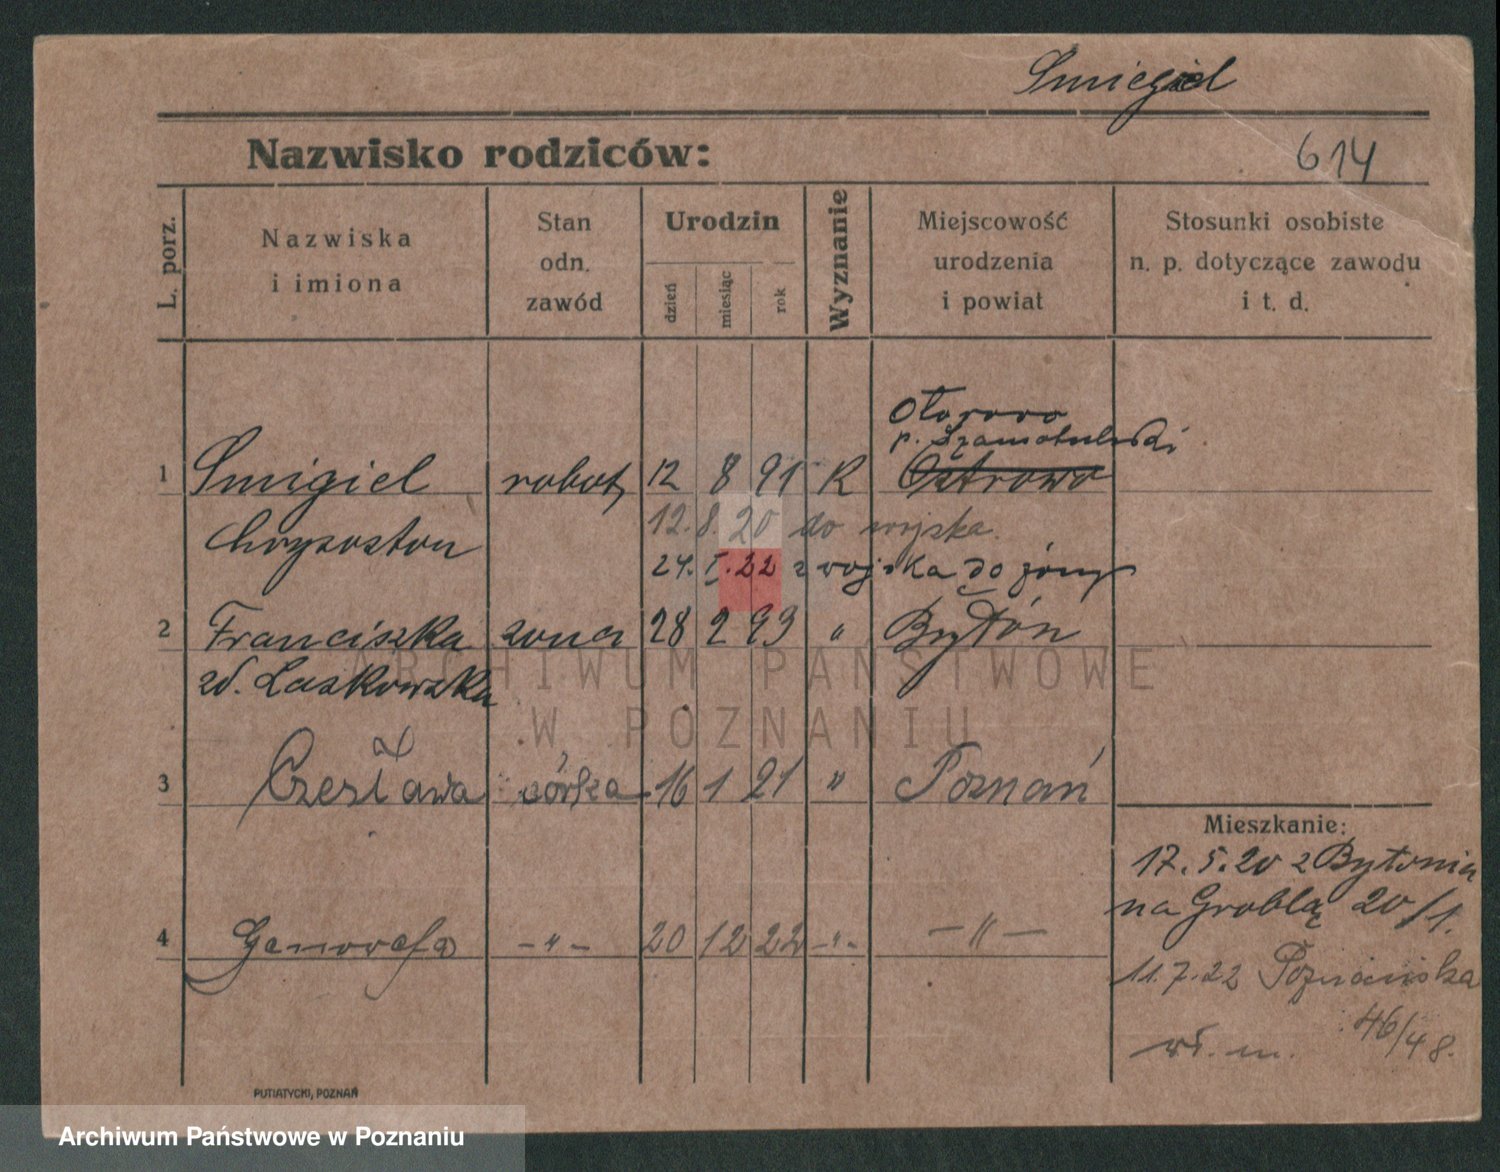 Smiegiel
Nazwisko rodziców:
614
L. porz.
Nazwiska
i imiona
Stan
odn.
zawód
Urodzin
dzień
miesiąc
rok
Wyznanie
Miejscowość
urodzenia
i powiat
Stosunki osobiste
n. p. dotyczące zawodu
i t. d.
Otorowo
p. Szamotulski
1 Smigiel robot 12 8 91 R Ostrowo
Chryzostom 12.8.20 do wojska.
24.I.22 z wojska do żony
2 Franciszka żona 28 2 93 " Bytoń
zd. Laskowska
3 Czesława córka 16 1 21 " Poznań
Mieszkanie:
17.5.20 z Bytonia
na Groblą 20/1.
4 Genowefa -"- 20 12 22 -"- -"-
11.7.22 Poznańska
46/48.
wł. m.
PUTIATYCKI, POZNAŃ
ARCHIWUM PAŃSTWOWE
W POZNANIU
Archiwum Państwowe w Poznaniu